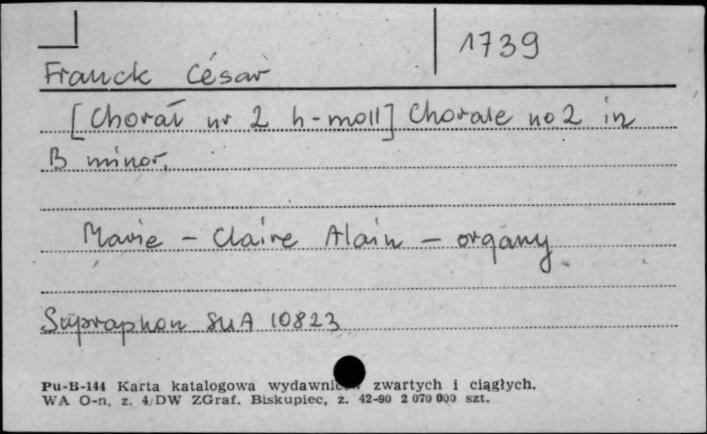 1739
Franck César
[Chorał nr 2 h-moll] Chorale no 2 in
B minor.
Marie - Claire Alain - organy
Supraphon SUA 10823
Pu-B-144 Karta katalogowa wydawnictw zwartych i ciągłych.
WA O-n, z. 4/DW ZGraf. Biskupiec, z. 42-90 2 070 000 szt.